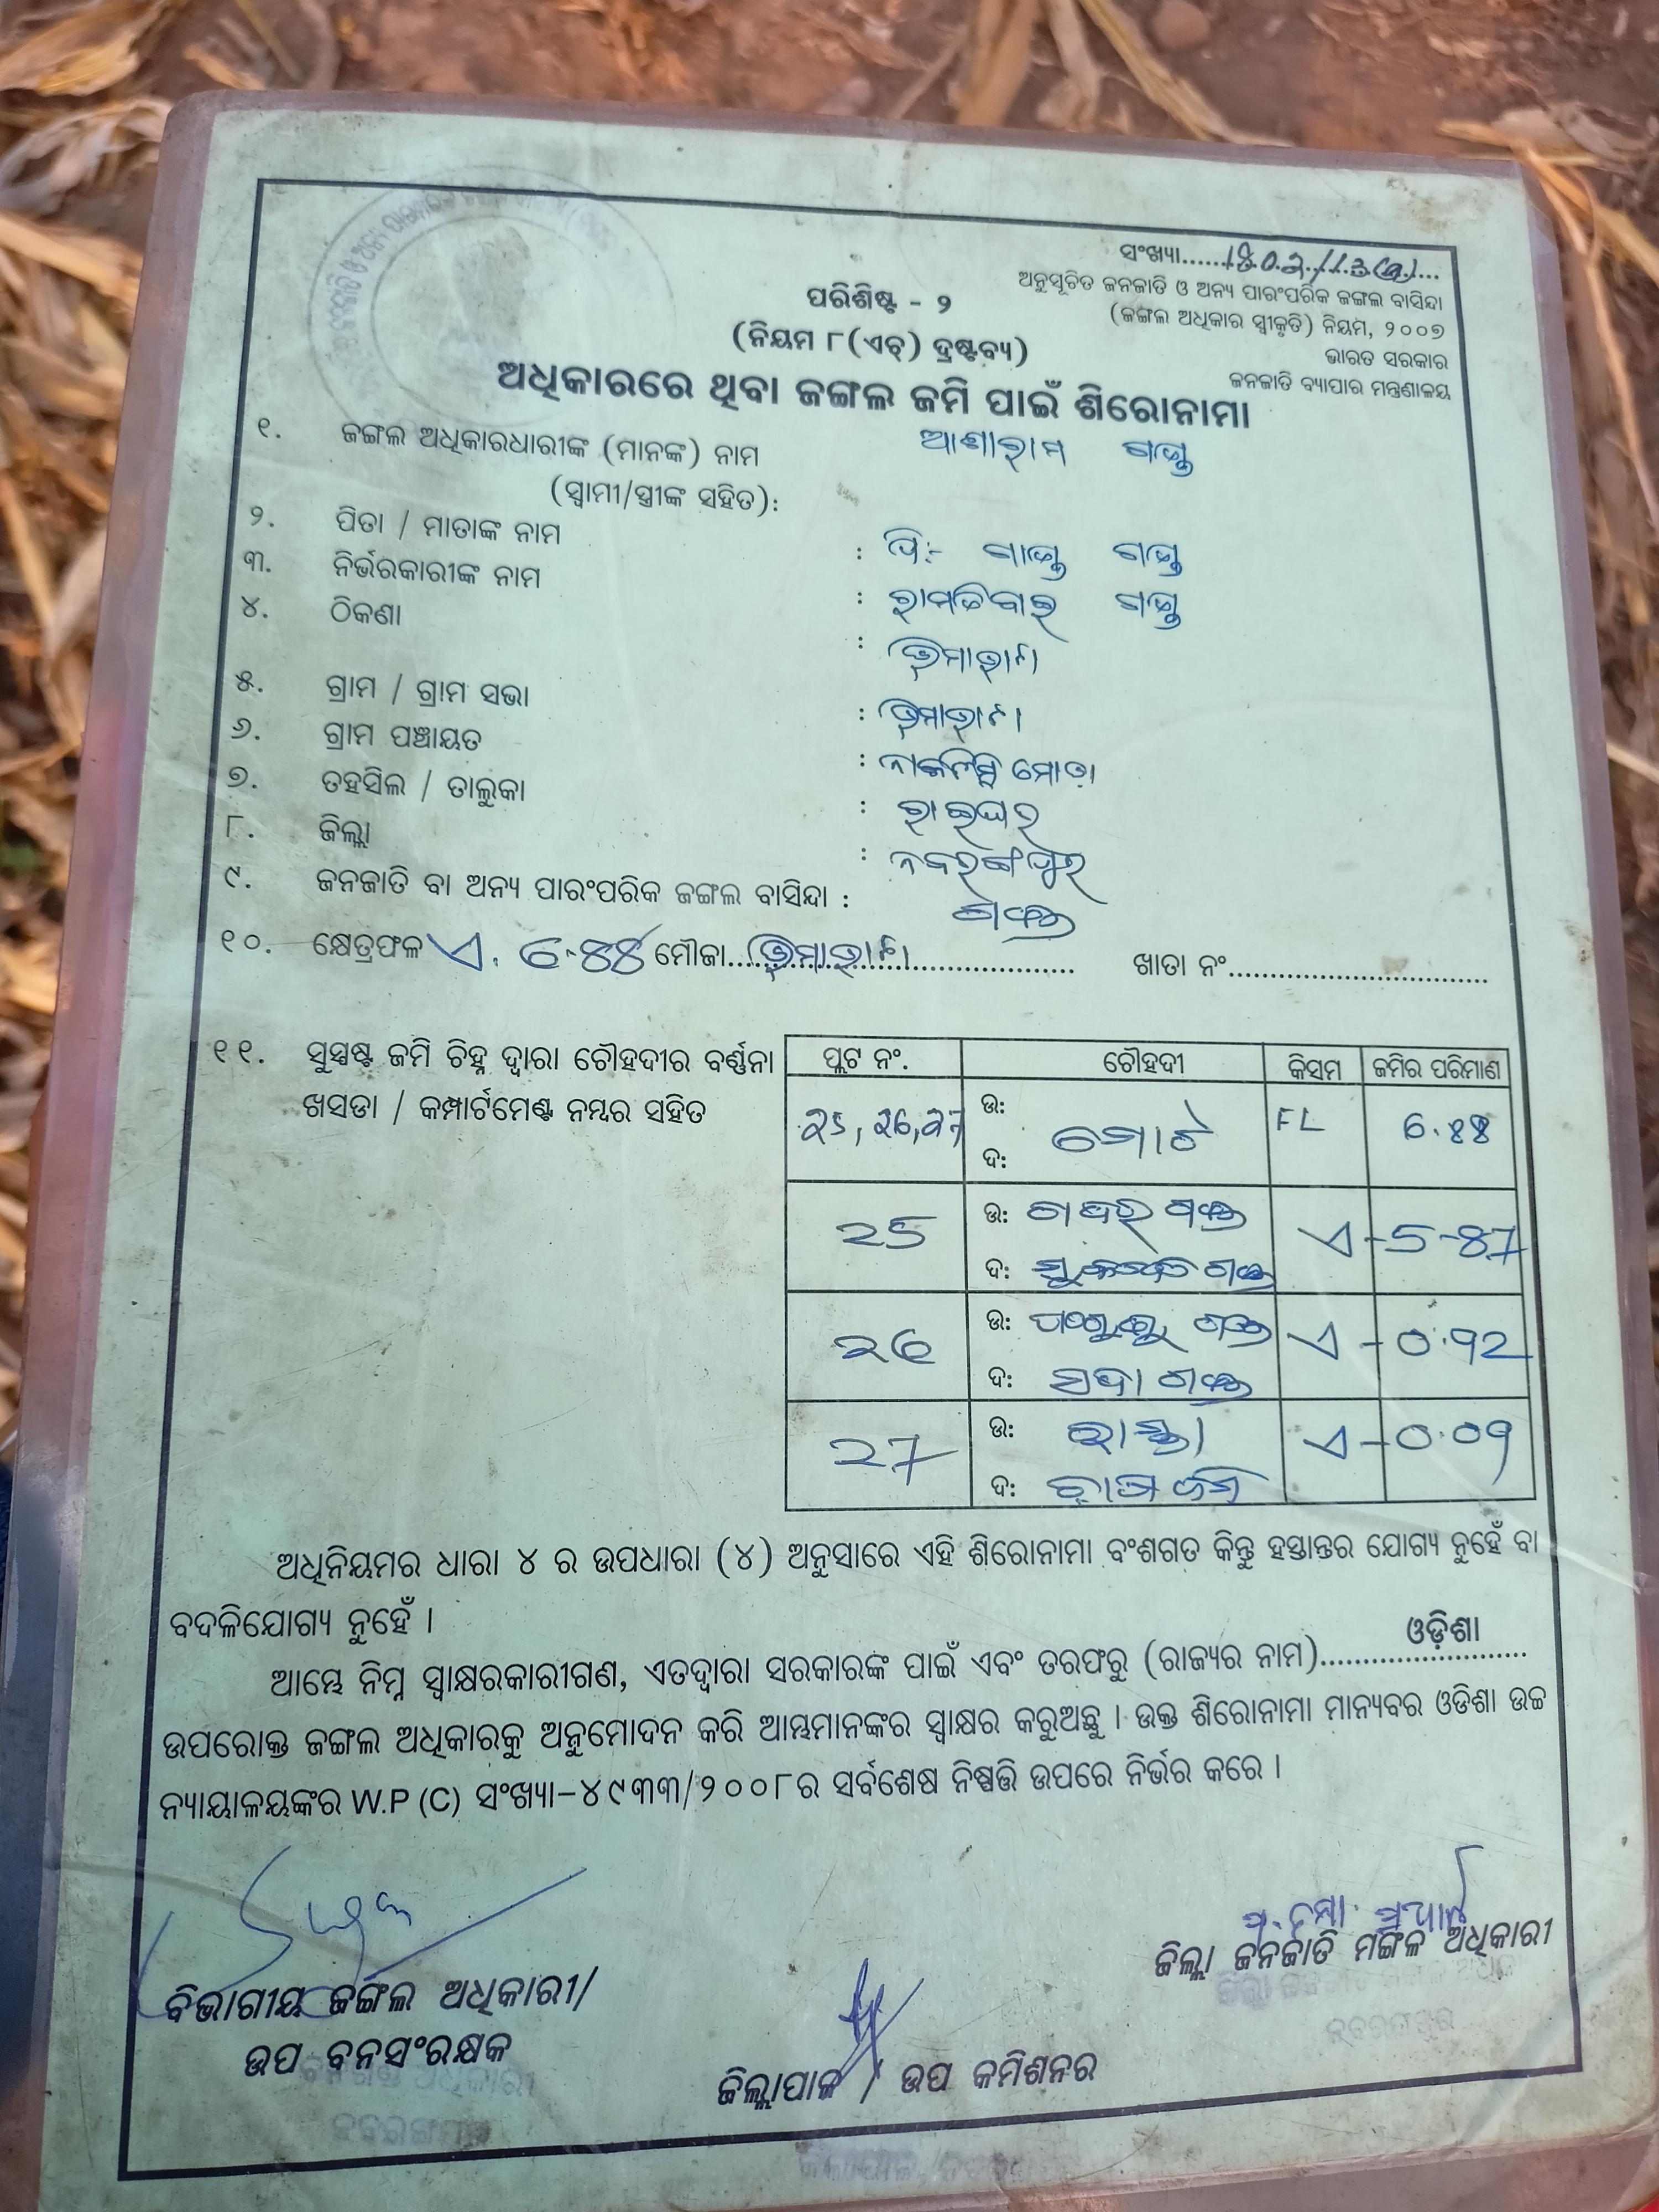 ସଂଖ୍ୟା......1802/13(ବ)...
ଅନୁସୂଚିତ ଜନଜାତି ଓ ଅନ୍ୟ ପାରଂପରିକ ଜଙ୍ଗଲ ବାସିନ୍ଦା
(ଜଙ୍ଗଲ ଅଧିକାର ସ୍ୱୀକୃତି) ନିୟମ, ୨୦୦୭
ଭାରତ ସରକାର
ଜନଜାତି ବ୍ୟାପାର ମନ୍ତ୍ରଣାଳୟ
ପରିଶିଷ୍ଟ - ୨
(ନିୟମ ୮(ଏଚ୍) ଦ୍ରଷ୍ଟବ୍ୟ)
ଅଧିକାରରେ ଥିବା ଜଙ୍ଗଲ ଜମି ପାଇଁ ଶିରୋନାମା
୧. ଜଙ୍ଗଲ ଅଧିକାରଧାରୀଙ୍କ (ମାନଙ୍କ) ନାମ ଆଶାରାମ ଗଣ୍ଡ
(ସ୍ୱାମୀ/ସ୍ତ୍ରୀଙ୍କ ସହିତ):
୨. ପିତା / ମାତାଙ୍କ ନାମ : ପି:- ଗାଣ୍ଡ ଗଣ୍ଡ
୩. ନିର୍ଭରକାରୀଙ୍କ ନାମ : ଗଣ୍ଡ
୪. ଠିକଣା : ଭିମାଭାଟା
୫. ଗ୍ରାମ / ଗ୍ରାମ ସଭା : ଭିମାଭାଟା
୬. ଗ୍ରାମ ପଞ୍ଚାୟତ :
୭. ତହସିଲ / ତାଲୁକା : ରାଇଘର
୮. ଜିଲ୍ଲା : ନବରଙ୍ଗପୁର
୯. ଜନଜାତି ବା ଅନ୍ୟ ପାରଂପରିକ ଜଙ୍ଗଲ ବାସିନ୍ଦା : ଗଣ୍ଡ
୧୦. କ୍ଷେତ୍ରଫଳ ଏ. 6.88 ମୌଜା....ଭିମାଭାଟା.... ଖାତା ନଂ..............................
୧୧. ସୁସ୍ପଷ୍ଟ ଜମି ଚିହ୍ନ ଦ୍ୱାରା ଚୌହଦୀର ବର୍ଣ୍ଣନା
ଖସଡା / କମ୍ପାର୍ଟମେଣ୍ଟ ନମ୍ବର ସହିତ
ପ୍ଲଟ ନଂ. ଚୌହଦୀ କିସମ ଜମିର ପରିମାଣ
25, 26, 27 ଉ: ଦ: ମୋଟ FL 6.88
25 ଉ: ଗଣ୍ଡ ଏ - 5-87
ଦ: ଗଣ୍ଡ
26 ଉ: ଗଣ୍ଡ ଏ - 0.92
ଦ: ଗଣ୍ଡ
27 ଉ: ରାସ୍ତା ଏ - 0.09
ଦ:
ଅଧିନିୟମର ଧାରା ୪ ର ଉପଧାରା (୪) ଅନୁସାରେ ଏହି ଶିରୋନାମା ବଂଶଗତ କିନ୍ତୁ ହସ୍ତାନ୍ତର ଯୋଗ୍ୟ ନୁହେଁ ବା
ବଦଳିଯୋଗ୍ୟ ନୁହେଁ ।
ଆମ୍ଭେ ନିମ୍ନ ସ୍ୱାକ୍ଷରକାରୀଗଣ, ଏତଦ୍ୱାରା ସରକାରଙ୍କ ପାଇଁ ଏବଂ ତରଫରୁ (ରାଜ୍ୟର ନାମ).........ଓଡ଼ିଶା.........
ଉପରୋକ୍ତ ଜଙ୍ଗଲ ଅଧିକାରକୁ ଅନୁମୋଦନ କରି ଆମ୍ଭମାନଙ୍କର ସ୍ୱାକ୍ଷର କରୁଅଛୁ । ଉକ୍ତ ଶିରୋନାମା ମାନ୍ୟବର ଓଡିଶା ଉଚ୍ଚ
ନ୍ୟାୟାଳୟଙ୍କର W.P (C) ସଂଖ୍ୟା-୪୯୩୩/୨୦୦୮ର ସର୍ବଶେଷ ନିଷ୍ପତ୍ତି ଉପରେ ନିର୍ଭର କରେ ।
ବିଭାଗୀୟ ଜଙ୍ଗଲ ଅଧିକାରୀ/
ଉପ ବନସଂରକ୍ଷକ
ଜିଲ୍ଲାପାଳ / ଉପ କମିଶନର
ଜିଲ୍ଲା ଜନଜାତି ମଙ୍ଗଳ ଅଧିକାରୀ